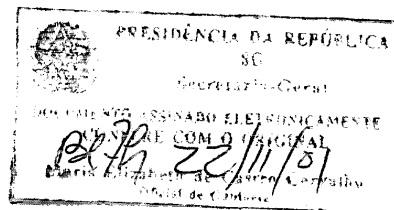 PRESIDÊNCIA DA REPÚBLICA
SG
Secretaria-Geral
DOCUMENTO ASSINADO ELETRONICAMENTE
CONFERE COM O ORIGINAL
22/11/01
Maria Elizabeth de Castro Carvalho
Oficial de Chancelaria